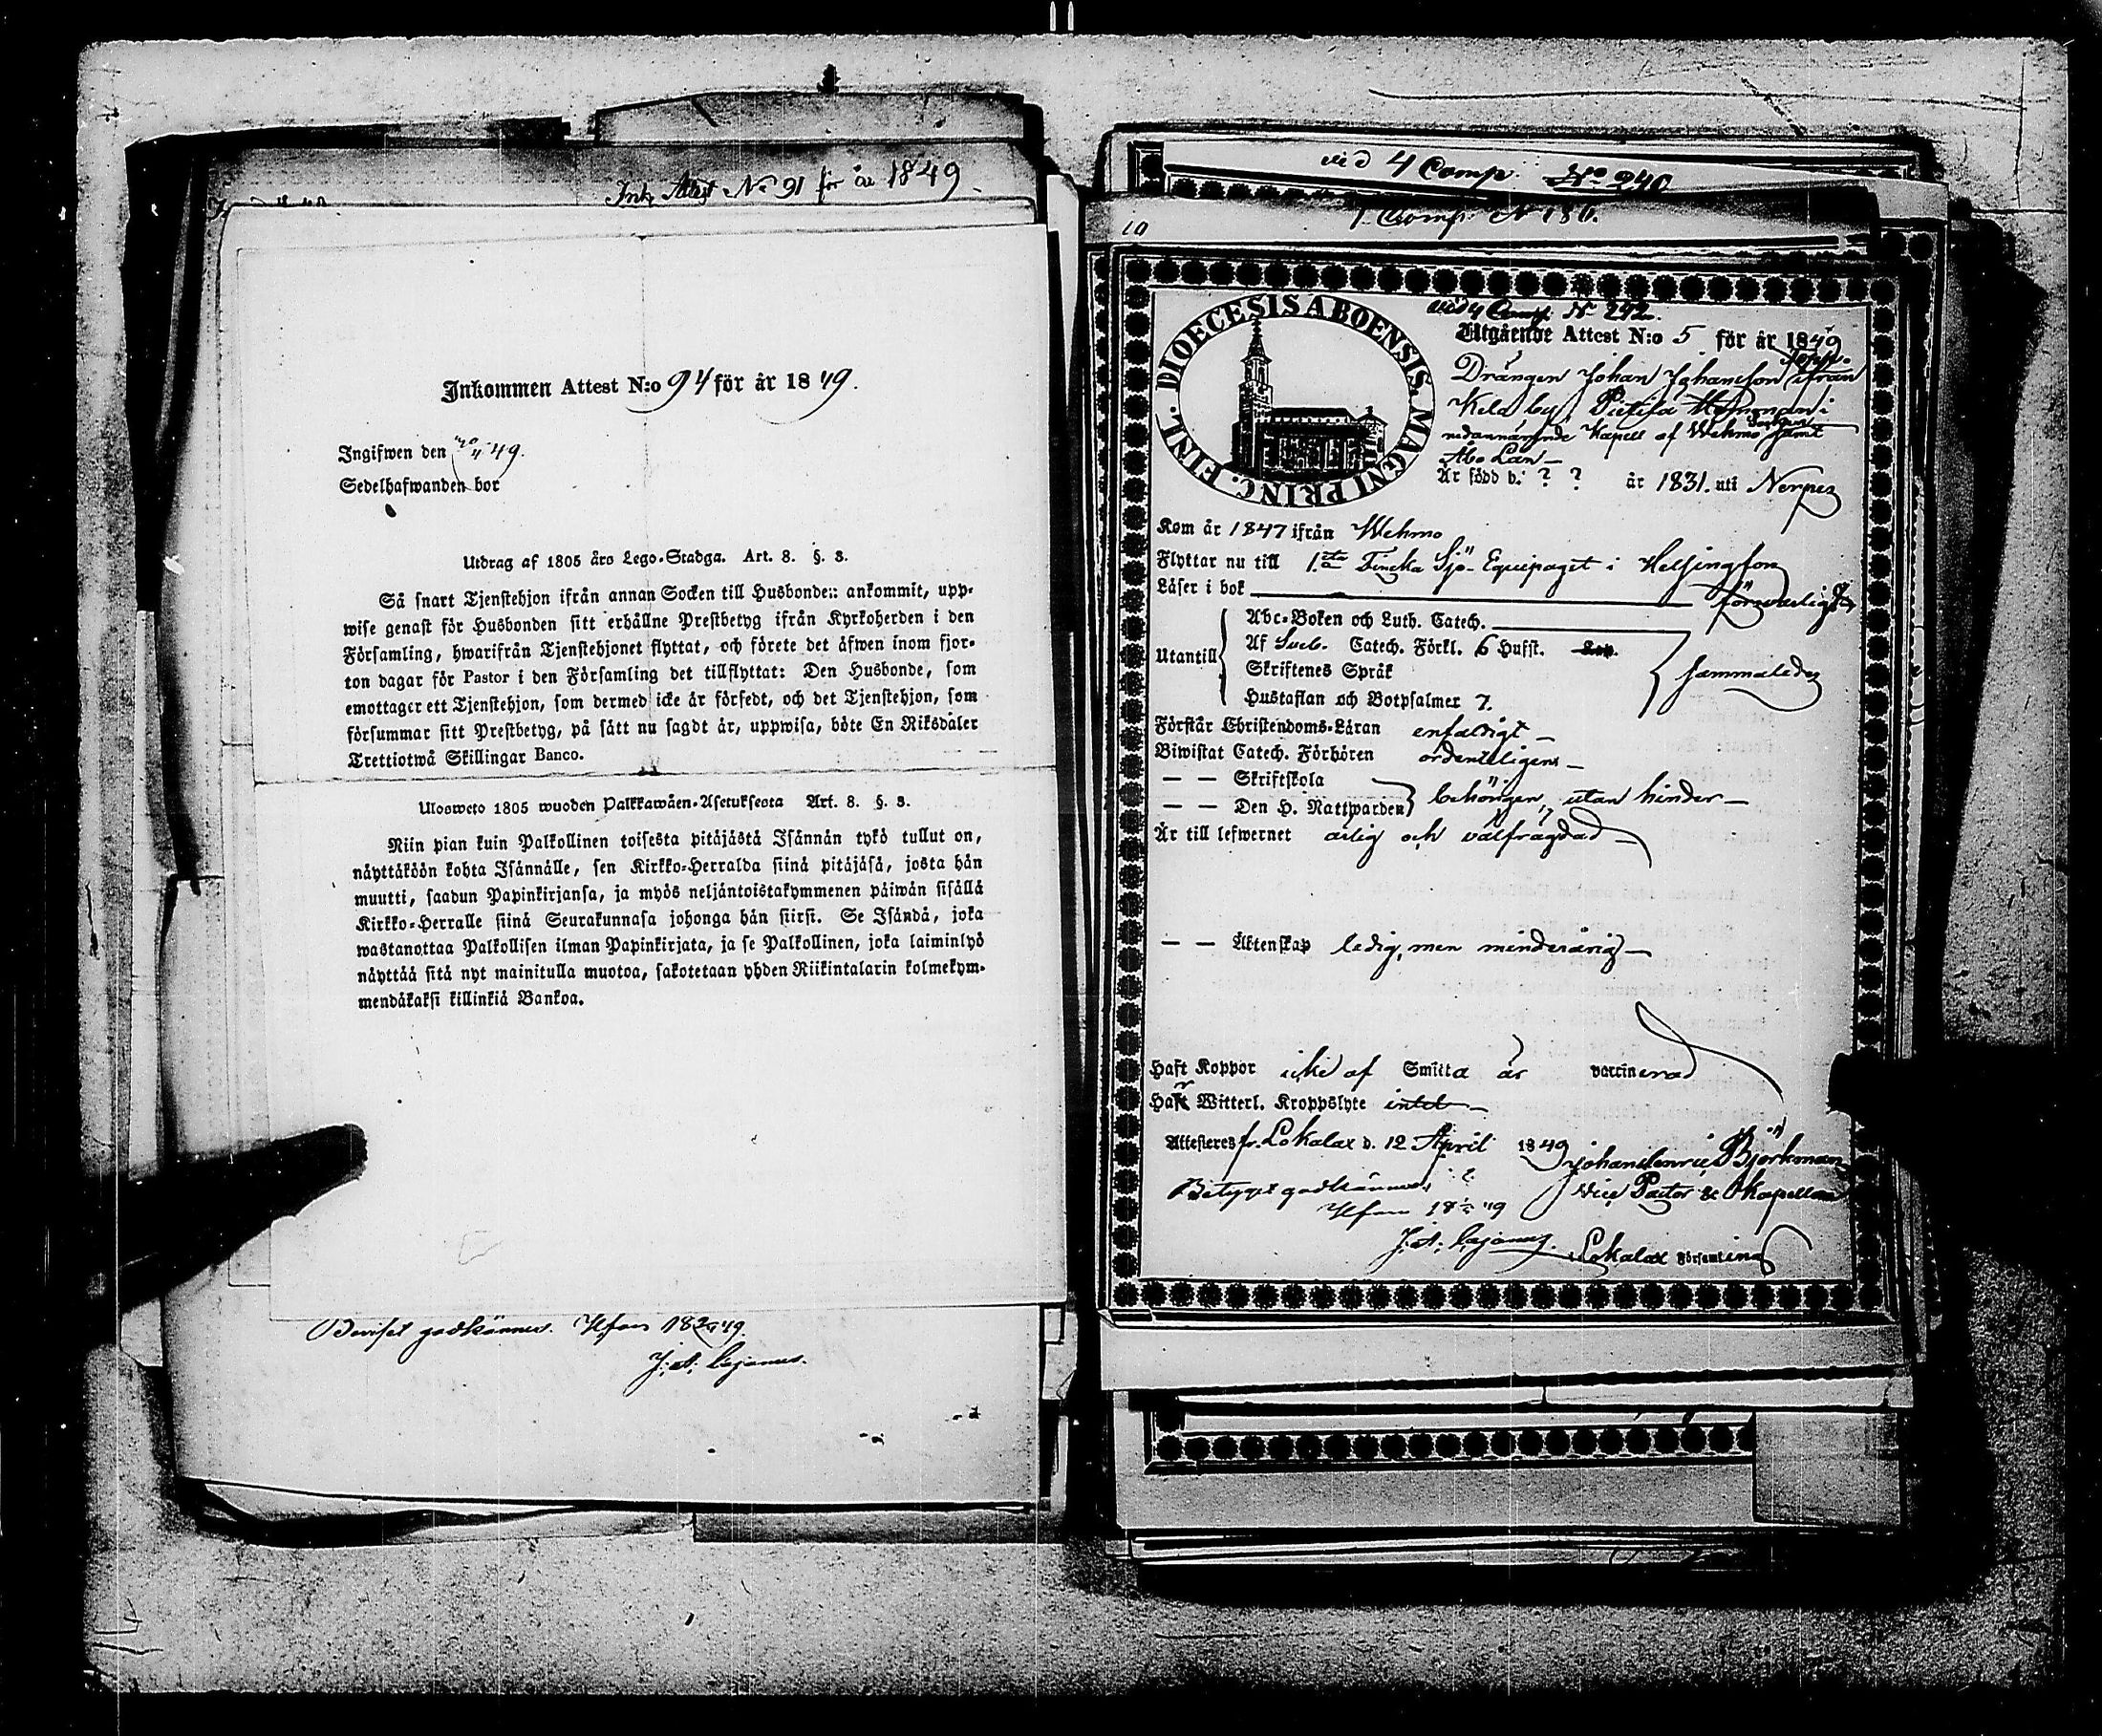 Ink. Attest No 91 för år 1849.
Inkommen Attest N:o 94 för år 1849.
Ingifwen den 49.
Sedelhafwanden bor
Utdrag af 1805 års Lego-Stadga. Art. 8. §. 3.
Så snart Tjenstehjon ifrån annan Socken till Husbonde:: ankommit, upp-
wise genast för Husbonden sitt erhållne Prestbetyg ifrån Kyrkoherden i den
Församling, hwarifrån Tjenstehjonet flyttat, och förete det äfwen inom fjor-
ton dagar för Pastor i den Församling det tillflyttat: Den Husbonde, som
emottager ett Tjenstehjon, som dermed icke är försedt, och det Tjenstehjon, som
försummar sitt Prestbetyg, på sätt nu sagdt är, uppwisa, böte En Riksdaler
Trettiotwå Skillingar Banco.
Ulosweto 1805 wuoden Palkkawäen-Asetuksesta Art. 8. §. 3.
Niin pian kuin Palkollinen toisesta pitäjästä Isännän tykö tullut on,
näyttäköön kohta Isännälle, sen Kirkko-Herralda siinä pitäjäsä, josta hän
muutti, saadun Papinkirjansa, ja myös neljäntoistakymmenen päiwän sisällä
Kirkko-Herralle siinä Seurakunnasa johonga hän siirsi. Se Isändä, joka
wastanottaa Palkollisen ilman Papinkirjata, ja se Palkollinen, joka laiminlyö
näyttää sitä nyt mainitulla muotoa, sakotetaan yhden Riikintalarin kolmekym-
mendäkaksi killinkiä Bankoa.
Beviset godkännes. Hfors
J. A. Cajanus.
vid 4 Comp. No 240
1 Comp. N 186.
10
DIOECESIS ABOENSIS. MAGNI PRINC. FINL.
vid 4 Comp. N 242.
Utgående Attest N:o 5 för år 1849
Drängen Johan Johansson ifrån
Kela by, Pietila Hemman i
nedannämnde Kapell af Wehmo Socken samt
Åbo Län
Är född d. ? ? år 1831. uti Nerpes
Kom år 1847 ifrån Wehmo
Flyttar nu till 1:sta Finska Sjö-Equipaget i Helsingfors
Läser i bok försvarligt
Utantill
Abc-Boken och Luth. Catech.
Af Sveb. Catech. Förkl. 6 Hufst.
Skriftenes Språk
Hustaflan och Botpsalmer 7.
sammaledes
Förstår Christendoms-Läran enfaldigt
Biwistat Catech. Förhören ordenteligen
— — Skriftskola
— — Den H. Nattwarden behörigen, utan hinder
Är till lefwernet ärlig och välfrägdad
— — Äktenskap ledig, men minderårig
Haft Koppor icke af Smitta är vaccinerad
Har Witterl. Kroppslyte intet
Attesteres fr. Lokalax d. 12 April 1849
Johan Henric Björkman
Vice Pastor & Kapellan
Betyget godkännes,
Hfors
J. A. Cajanus.
Lokalax Församling